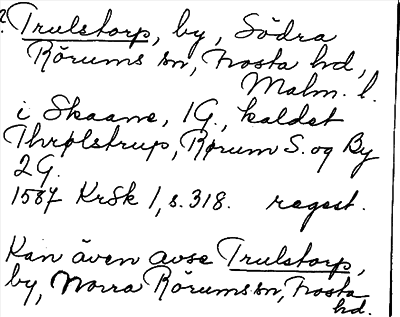 ? Trulstorp, by, Södra
Rörums sn, Frosta hd,
Malm. l.
i Skaane, 1G., kaldet
Thrølstrup, Rørum S. og By
2G.
1587 KrSk 1, s. 318. regest.
Kan även avse Trulstorp,
by, Norra Rörums sn, Frosta
hd.